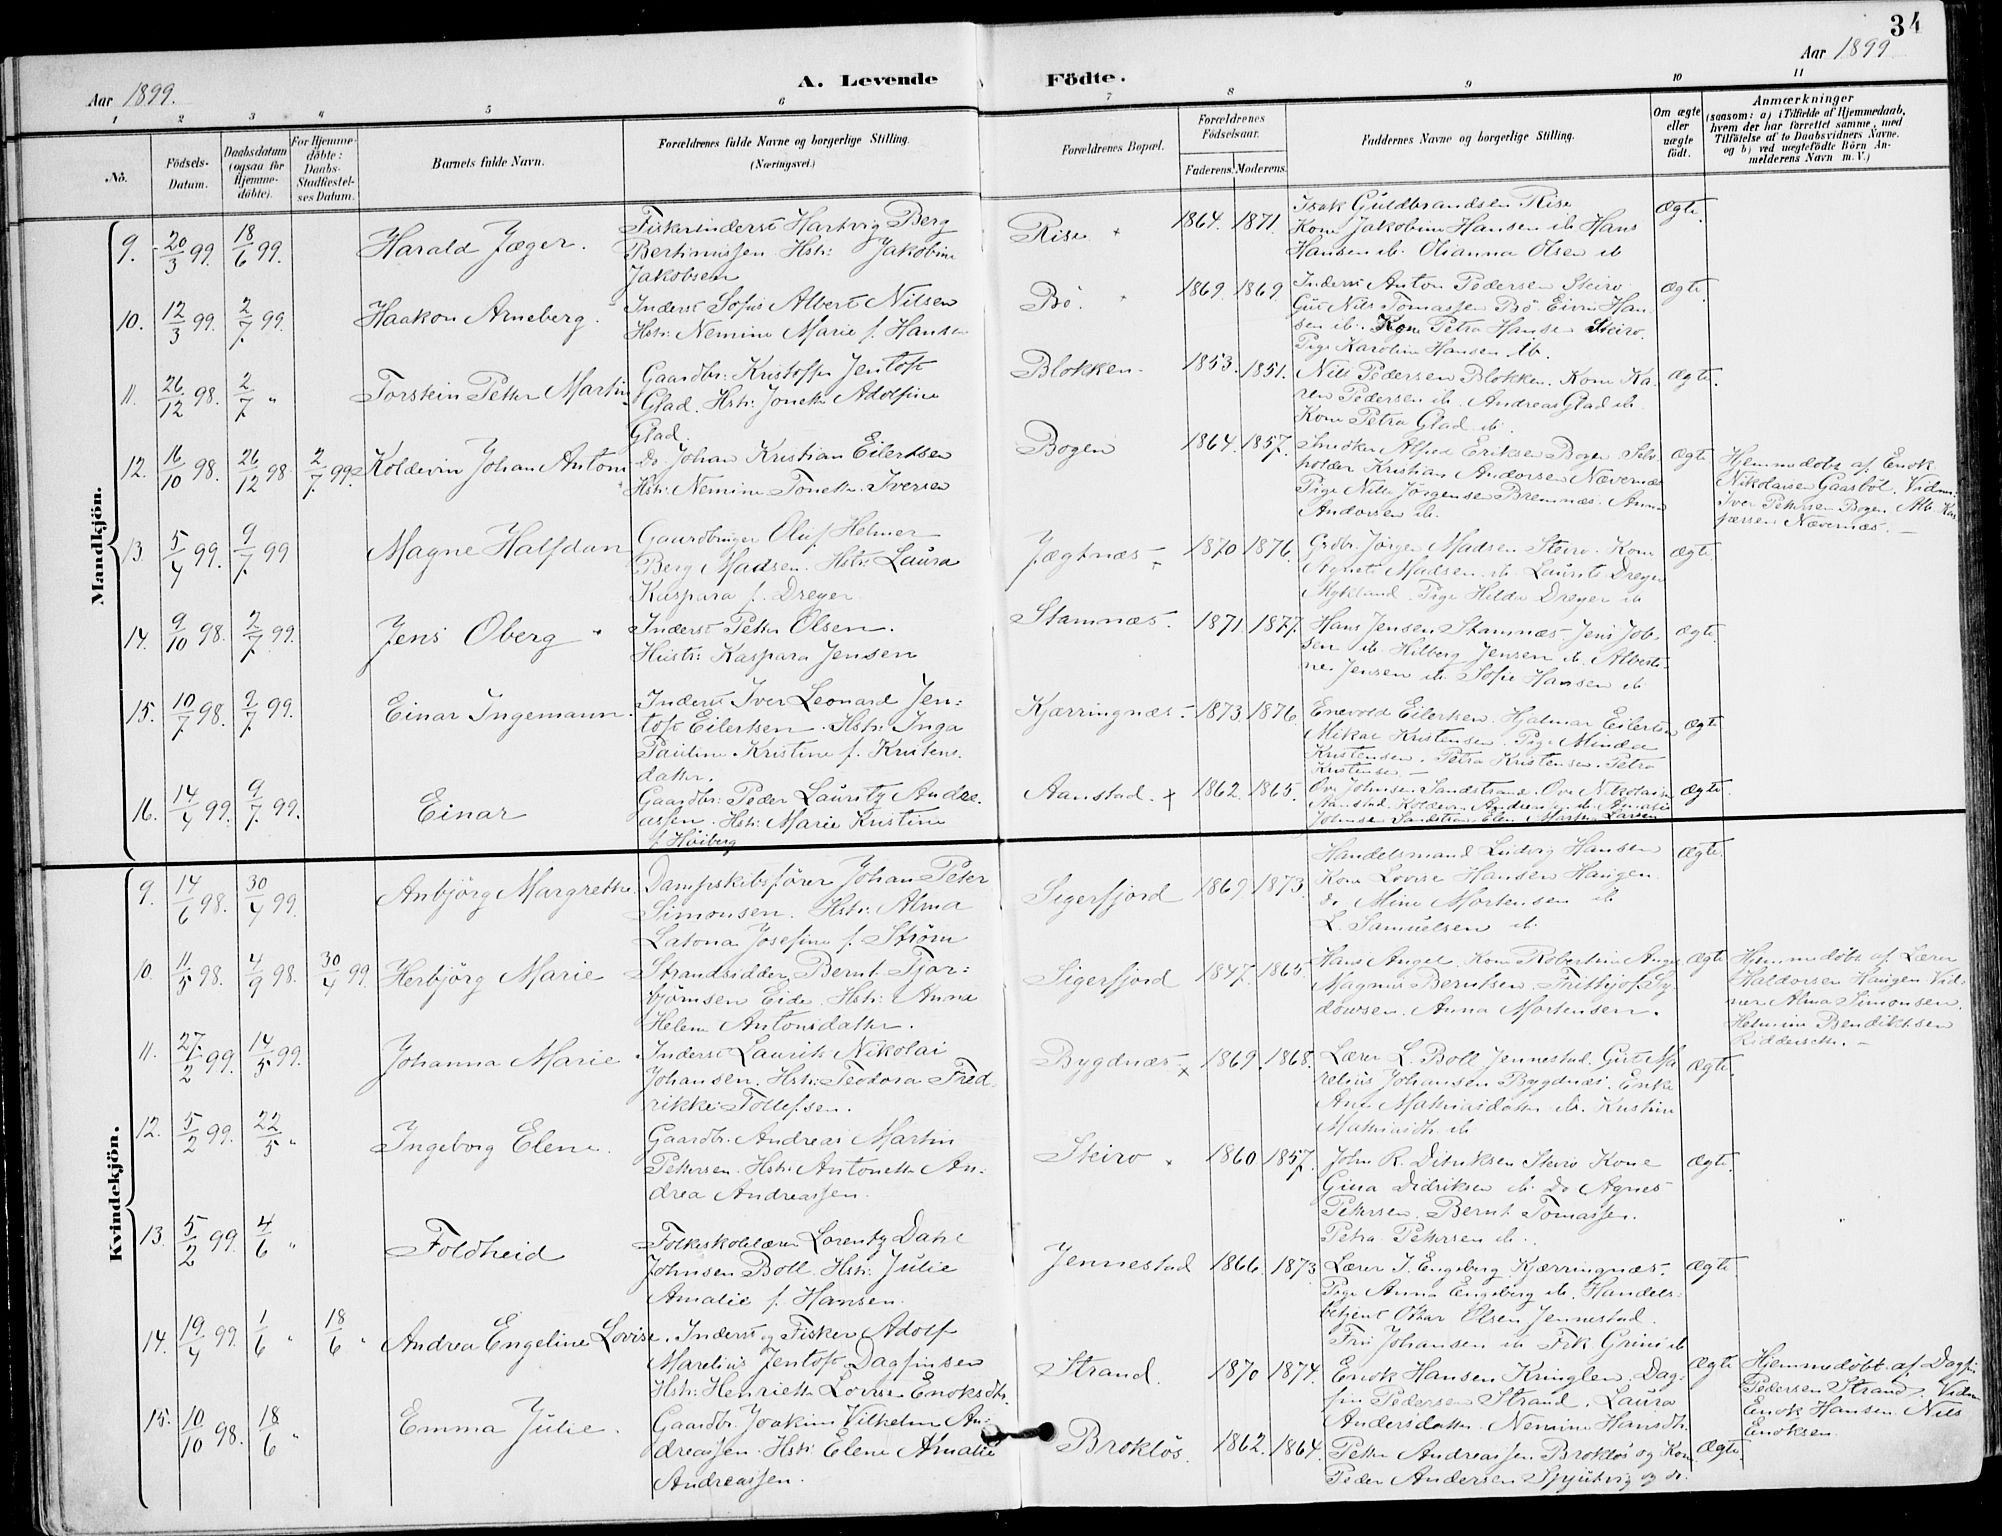 34
Aar 1899.
A. Levende Födte.
Aar 1899
1 2 3 4 5 6 7 8 9 10 11
No.
Födsels-Datum.
Daabsdatum (ogsaa for Hjemme-döbte).
For Hjemme-döbte: Daabs-Stadfæstel-ses Datum.
Barnets fulde Navn.
Forældrenes fulde Navne og borgerlige Stilling. (Næringsvei.)
Forældrenes Bopæl.
Forældrenes Födselsaar.
Faderens. Moderens.
Faddernes Navne og borgerlige Stilling.
Om ægte eller uægte født.
Anmærkninger
(saasom: a) i Tilfælde af Hjemmedaab,
hvem der har forrettet samme, med
Tilföielse af to Daabsvidners Navne.
og b) ved uægtefödte Börn An-
melderens Navn m. V.)
Mandkjön.
9. 20/3 99. 18/6 99. Harald Jæger.
Fiskerinderst Hartvig Berg
Bertinussen. Hstr: Jakobine
Jakobsen
Rise 1864. 1871.
Isak Guldbrandsen Rise
Kone Jakobine Hansen ib Hans
Hansen ib. Olianna Olsen ib
Ægte.
10. 12/3 99. 2/7 99. Haakon Arneberg.
Inderst Sofus Albert Nilsen
Hstr: Nemine Marie f. Hansen
Bö. 1869. 1869.
Inderst Anton Pedersen Steiro
Gut Nils Tomassen Bö. Eivin Han-
sen ib. Kone Petra Hansen Steiro.
Pige Karoline Hansen ib.
Ægte.
11. 26/12 98. 2/7 " Torstein Petter Martin
Gaardbr: Kristoffer Jentoft
Glad. Hstr: Jonette Adolfine
Glad.
Blokken. 1853. 1851.
Nils Pedersen Blokken. Kone Ka-
ren Pedersen ib. Andreas Glad ib.
Kone Petra Glad ib.
Ægte.
12. 16/10 98. 26/12 98. 2/7 99. Koldevin Johan Antoni
do Johan Kristian Eilertsen
Hstr: Nemine Tonette Iversen
Bogen 1864. 1857.
Alfred Eriksen Bogen
Kristian Andersen Nævernæs
Pige Nille Jörgensen Bremnæs. Anna
Andersen ib.
Ægte
Hjemmedöbt af Enok
Nikolaisen Gaasböl. Vidne:
Iver Pettersen Bogen
Nævernæs.
13. 5/4 99. 9/7 99 Magne Halfdan
Gaardbruger Oluf Helmer
Berg Madsen. Hstr: Laura
Kaspara f. Dreyer.
Jægtnæs 1870 1876.
Grdbr. Jörgen Madsen Steiro. Kone
Agnete Madsen ib. Laurits Dreyer
Mykland. Pige Hilda Dreyer ib
Ægte.
14. 9/10 98. 2/7 99. Jens Oberg
Inderst Petter Olsen.
Hustr: Kaspara Jensen
Stamnæs. 1871. 1877.
Hans Jensen Stamnæs. Jens Job-
sen ib Hilberg Jensen ib. Alberti-
ne Jensen ib. Sofie Hansen ib
Ægte.
15. 10/7 98. 2/7 99. Einar Ingemann.
Inderst Iver Leonard Jen-
toft Eilertsen. Hstr: Inga
Pauline Kristine f. Kristens-
datter.
Kjærringnæs. 1873. 1876.
Enevold Eilertsen. Hjalmar Eilertsen
Mikal Kristensen. Pige Minda
Kristensen. Petra Kristensen. Petra
Kristensen.
Ægte
16. 14/4 99. 9/7. 99. Einar
Gaardbr: Peder Lauritz Andre-
assen. Hstr: Marie Kristine
f. Höiberg
Aanstad. 1862. 1865.
Ove Johnsen Sandstrand. Ove Nikolaisen
Aanstad. Koldevin Andreassen ib. Amalie
Johnsen Sandstrand. Elen Marta Larsen
Ægte.
Kvindekjön.
9. 14/6 98. 30/4 99. Anbjörg Margrethe
Dampskibsförer Johan Peter
Simonsen. Hstr: Alma
Latona Josefine f. Ström
Sigerfjord 1869. 1873.
Handelsmand Ludvig Hansen
Kone Lovise Hansen Haugen.
do Mine Mortensen ib
L. Samuelsen ib.
Ægte.
10. 11/5 98. 4/9 98. 30/4 99. Herbjörg Marie
Strandsidder Bernt Tjor-
björnsen Eide. Hstr: Anna
Helene Antonsdatter.
Sigerfjord 1847. 1865.
Hans Angel. Kone Robertine Angel
Magnus Berntsen. Fritthjof Sy-
dowsen. Anna Mortensen.
Ægte
Hjemmedöbt af Lærer
Haldorsen Haugen. Vid-
ner Alma Simonsen.
Helmine Bendiktsen
11. 27/2 99. 14/5 99. Johanna Marie
Inderst Laurits Nikolai
Johansen. Hstr: Teodora Fred-
rikke Tollefsen.
Bygdnæs 1869. 1868.
Lærer L. Boll Jennestad. Gut Ma-
relius Johansen Bygdnæs. Enke
Ane Mathiasdatter ib. Kristine
Mathiasdtr. ib
Ægte.
12. 5/2 99. 22/5 " Ingeborg Elene.
Gaardbr. Andreas Martin
Pettersen. Hstr: Antonette An-
drea Andreassen.
Steiro 1860 1857.
John R. Didriksen Steiro Kone
Gina Didriksen ib. do Agnes
Pettersen. Bernt Tomassen.
Petra Pettersen ib.
Ægte.
13. 5/2 99. 4/6 " Foldheid
Folkeskolelærer Lorentz Dahl
Johnsen Boll. Hstr: Julie
Amalie f. Hansen.
Jennestad 1866. 1873.
Lærer J. Engeberg Kjærringnæs.
Pige Anna Engeberg ib. Handels-
betjent Othar Olsen Jennestad.
Fru Johansen ib Frk Grüni ib
Ægte
14. 19/4 99. 1/6 " 18/6 " Andrea Engeline Lovise.
Inderst og Fisker Adolf
Marelius Jentoft Dagfinsen
Hstr: Henriette Lovise Enoksdtr.
Strand. 1870 1874.
Enok Hansen Kringlen. Dag-
fin Pedersen Strand. Laura
Andersdatter. Nemine Hansdtr.
Ægte
Hjemmedöbt af Dagfin
Pedersen Strand. Vidner
Enok Hansen. Nils
Enoksen.
15. 10/10 98. 18/6 " Emma Julie.
Gaardbr. Joakim Vilhelm An-
dreassen. Hstr: Elene Amalie
Andreassen.
Broklös. 1862. 1864.
Petter Andreassen Broklös og Kone.
Peder Andersen Spjutvig og do.
Ægte.